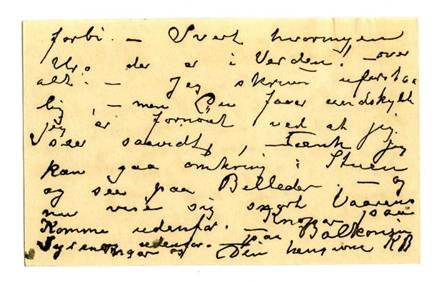 forbi. – Svert hvormegen
Uro der er i Verden! – over
alt. – Jeg skriver uforstaa
lig, – men Du faar undskylde
jeg er fornøiet ved at jeg
seer saavidt, – tænk jeg
kan gaa omkring i Stuen
og see paa Billeder – og
nu viser sig snart Vaarens
Komme udenfor. – Knopper paa
Syrenerne udenfor. – paa Balkonen
Din hengivne KB